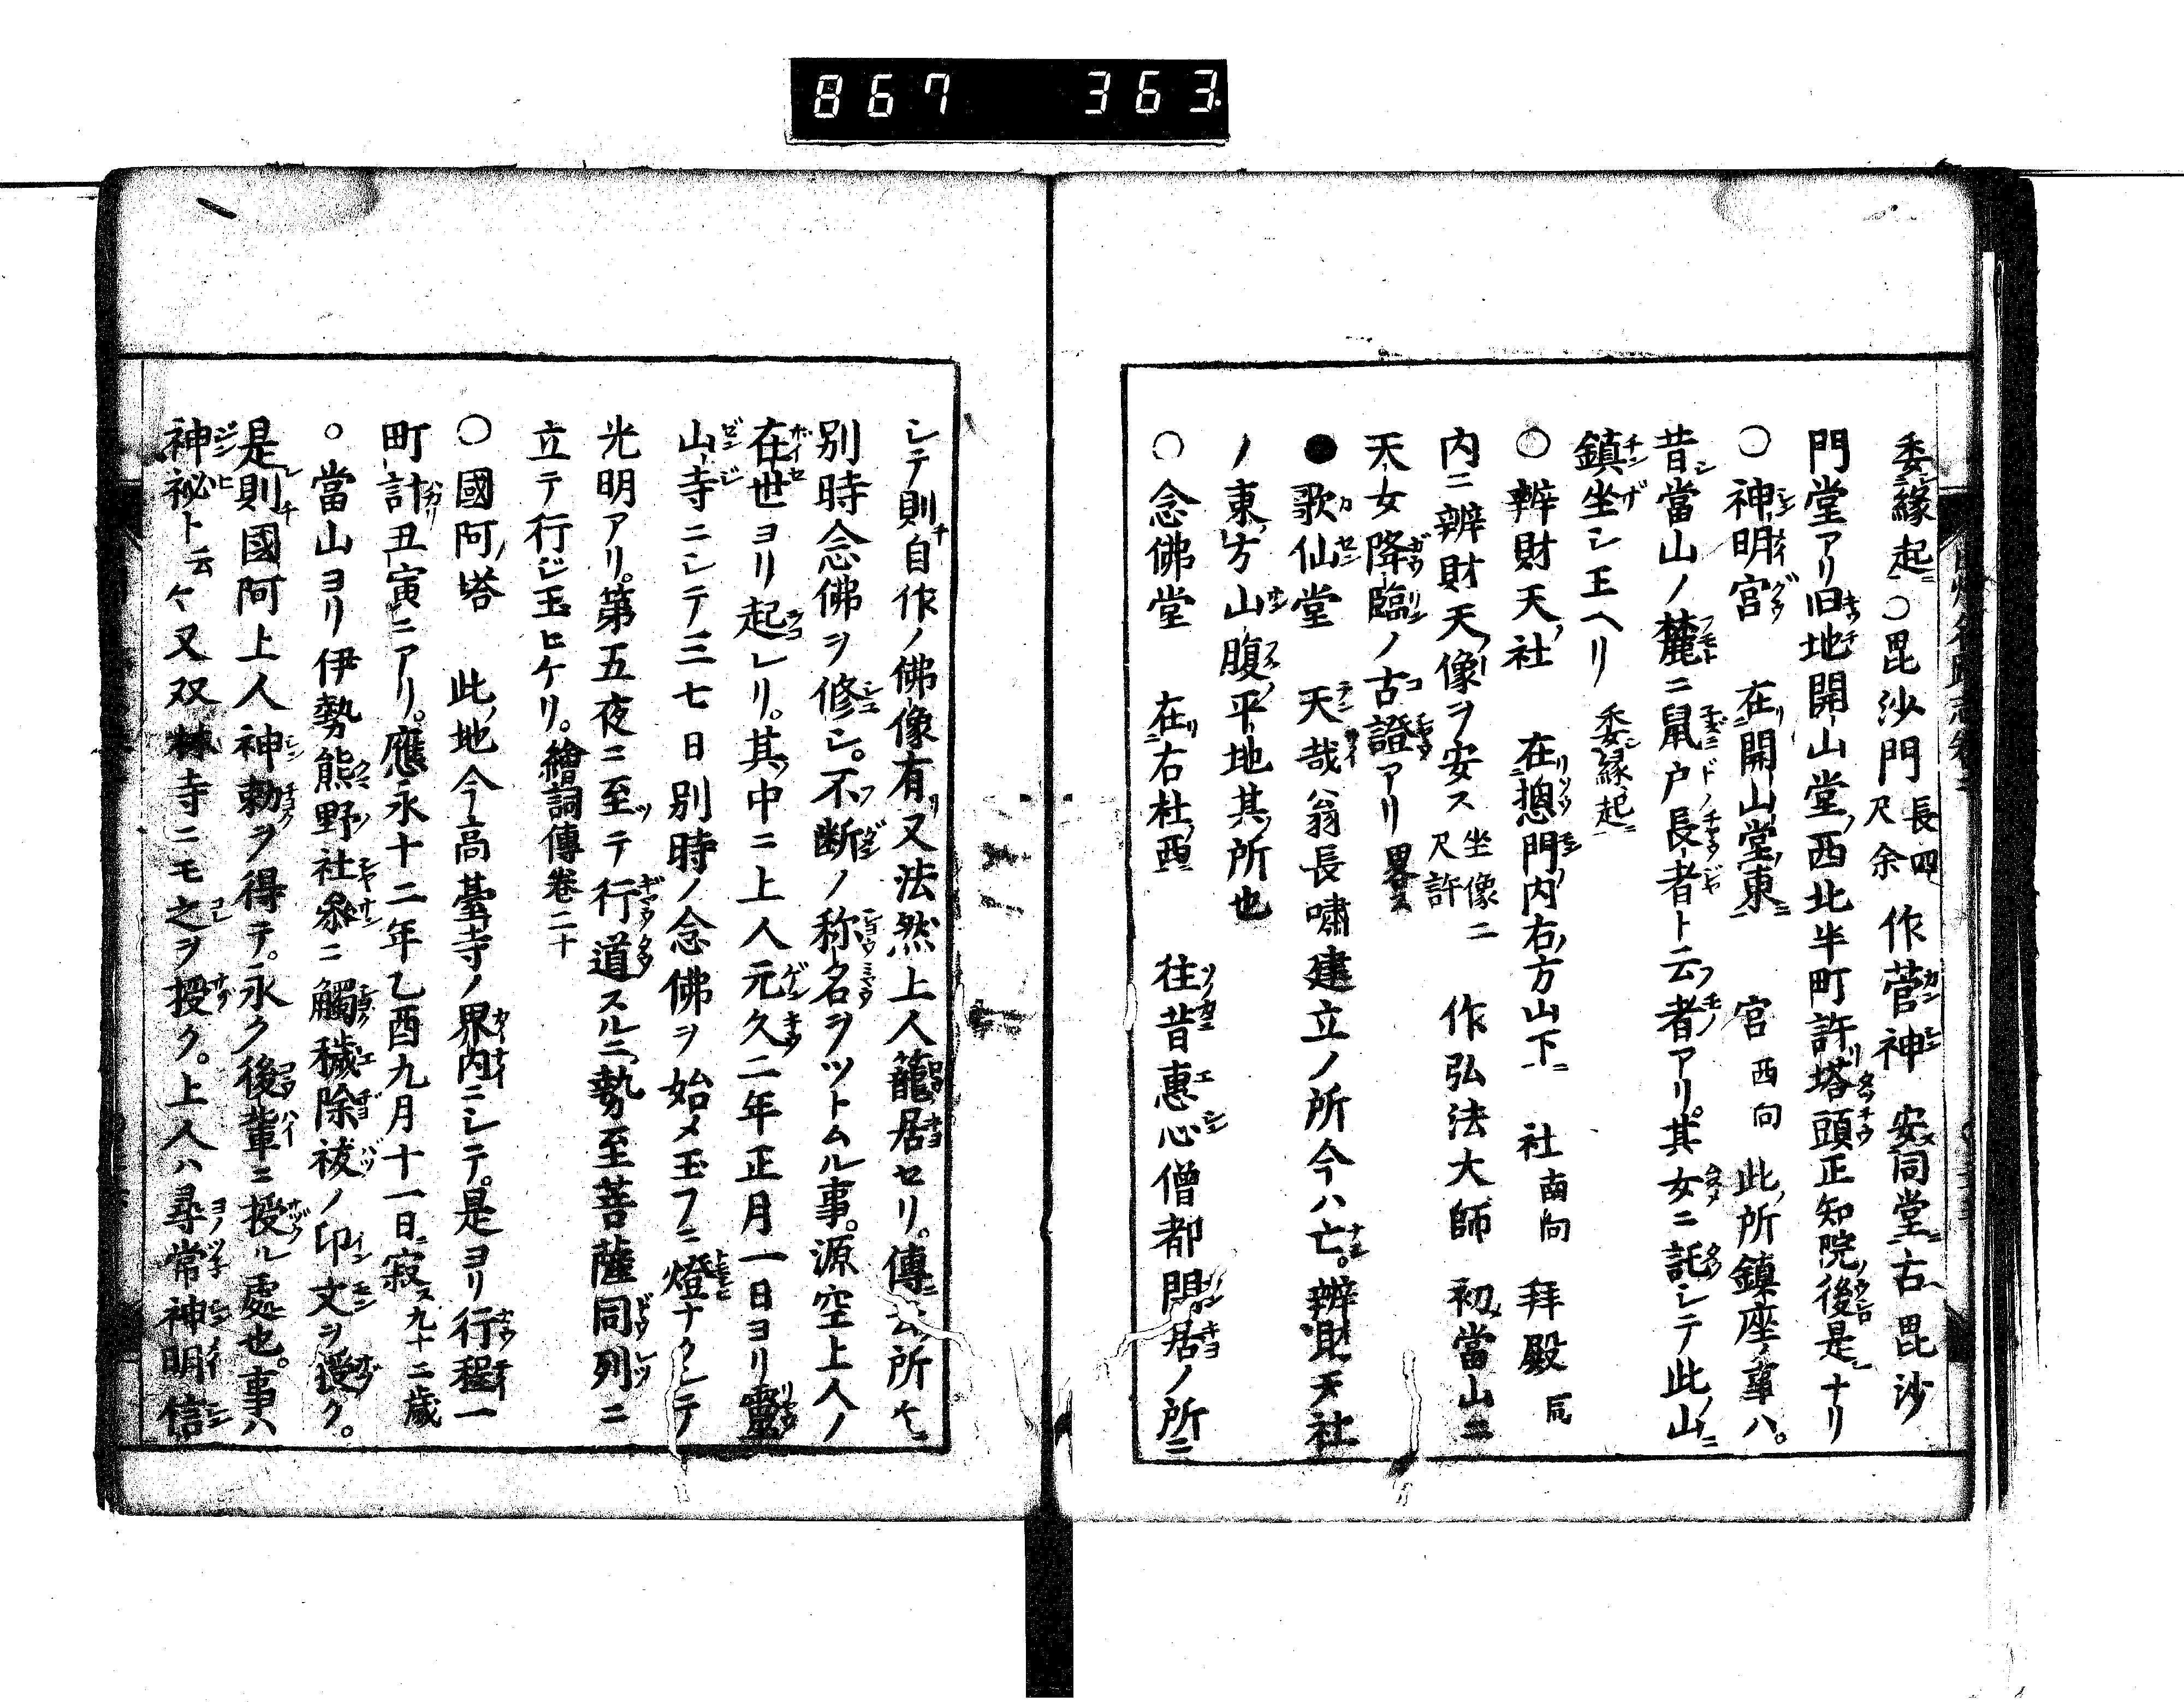 867 363
委緣起ニ○毘沙門長四尺余 作菅神 安同堂ニ古毘沙
門堂アリ旧地開山堂ノ西北半町許塔頭正知院ノ後是ナリ
○神明宮 在開山堂ノ東ニ 宮西向 此所鎮座ノ事ハ。
昔當山ノ麓ニ鼠戸長者ト云者アリ。其女ニ託シテ此山ニ
鎮坐シ玉ヘリ 委緣起ニ
○辨財天ノ社 在惣門ノ内右ノ方山下ニ 社南向 拜殿瓦
内ニ辨財天ノ像ヲ安ス坐像二尺許 作弘法大師 初當山ニ
天女降臨ノ古證アリ畧ス
●歌仙堂 天哉翁長嘯建立ノ所今ハ亡。辨財天社
ノ東ノ方山腹ノ平地其所也
○念佛堂 在右社ノ西ニ 往昔惠心僧都閑居ノ所ニ
シテ則自作ノ佛像有リ又法然上人籠居セリ。傳ニ云所ハ
別時念佛ヲ修シ。不断ノ称名ヲツトムル事。源空上人ノ
在世ヨリ起レリ。其中ニ上人元久二年正月一日ヨリ靈
山寺ニシテ三七日別時ノ念佛ヲ始メ玉フニ燈ナクシテ
光明アリ。第五夜ニ至テ行道スルニ勢至菩薩同列ニ
立テ行ジ玉ヒケリ。繪詞傳卷二十
○國阿ノ塔 此地今高臺寺ノ界内ニシテ。是ヨリ行程一
町計丑寅ニアリ。應永十二年乙酉九月十一日ニ寂ス九十二歳
○當山ヨリ伊勢熊野社參ニ觸穢除祓ノ印文ヲ授ク。
是則國阿上人神勅ヲ得テ。永ク後輩ニ授ル處也。事ハ
神祕ト云々又双林寺ニモ之ヲ授ク。上人ハ尋常神明信